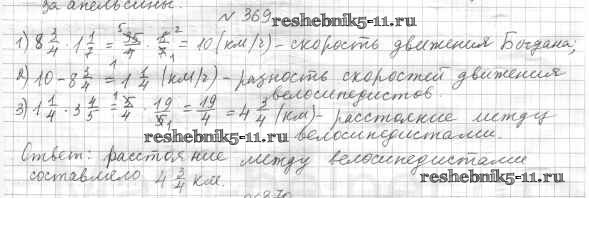 за апельсины.
№ 369 reshebnik5-11.ru
1) 8 3/4 · 1 1/7 = 35/4 · 8/7 = 10 (км/г) - скорость движения Богдана;
2) 10 - 8 3/4 = 1 1/4 (км/г) - разность скоростей движения
велосипедистов.
3) 1 1/4 · 3 4/5 = 5/4 · 19/5 = 19/4 = 4 3/4 (км) - расстояние между
reshebnik5-11.ru велосипедистами.
Ответ: расстояние между велосипедистами
составляло 4 3/4 км. reshebnik5-11.ru